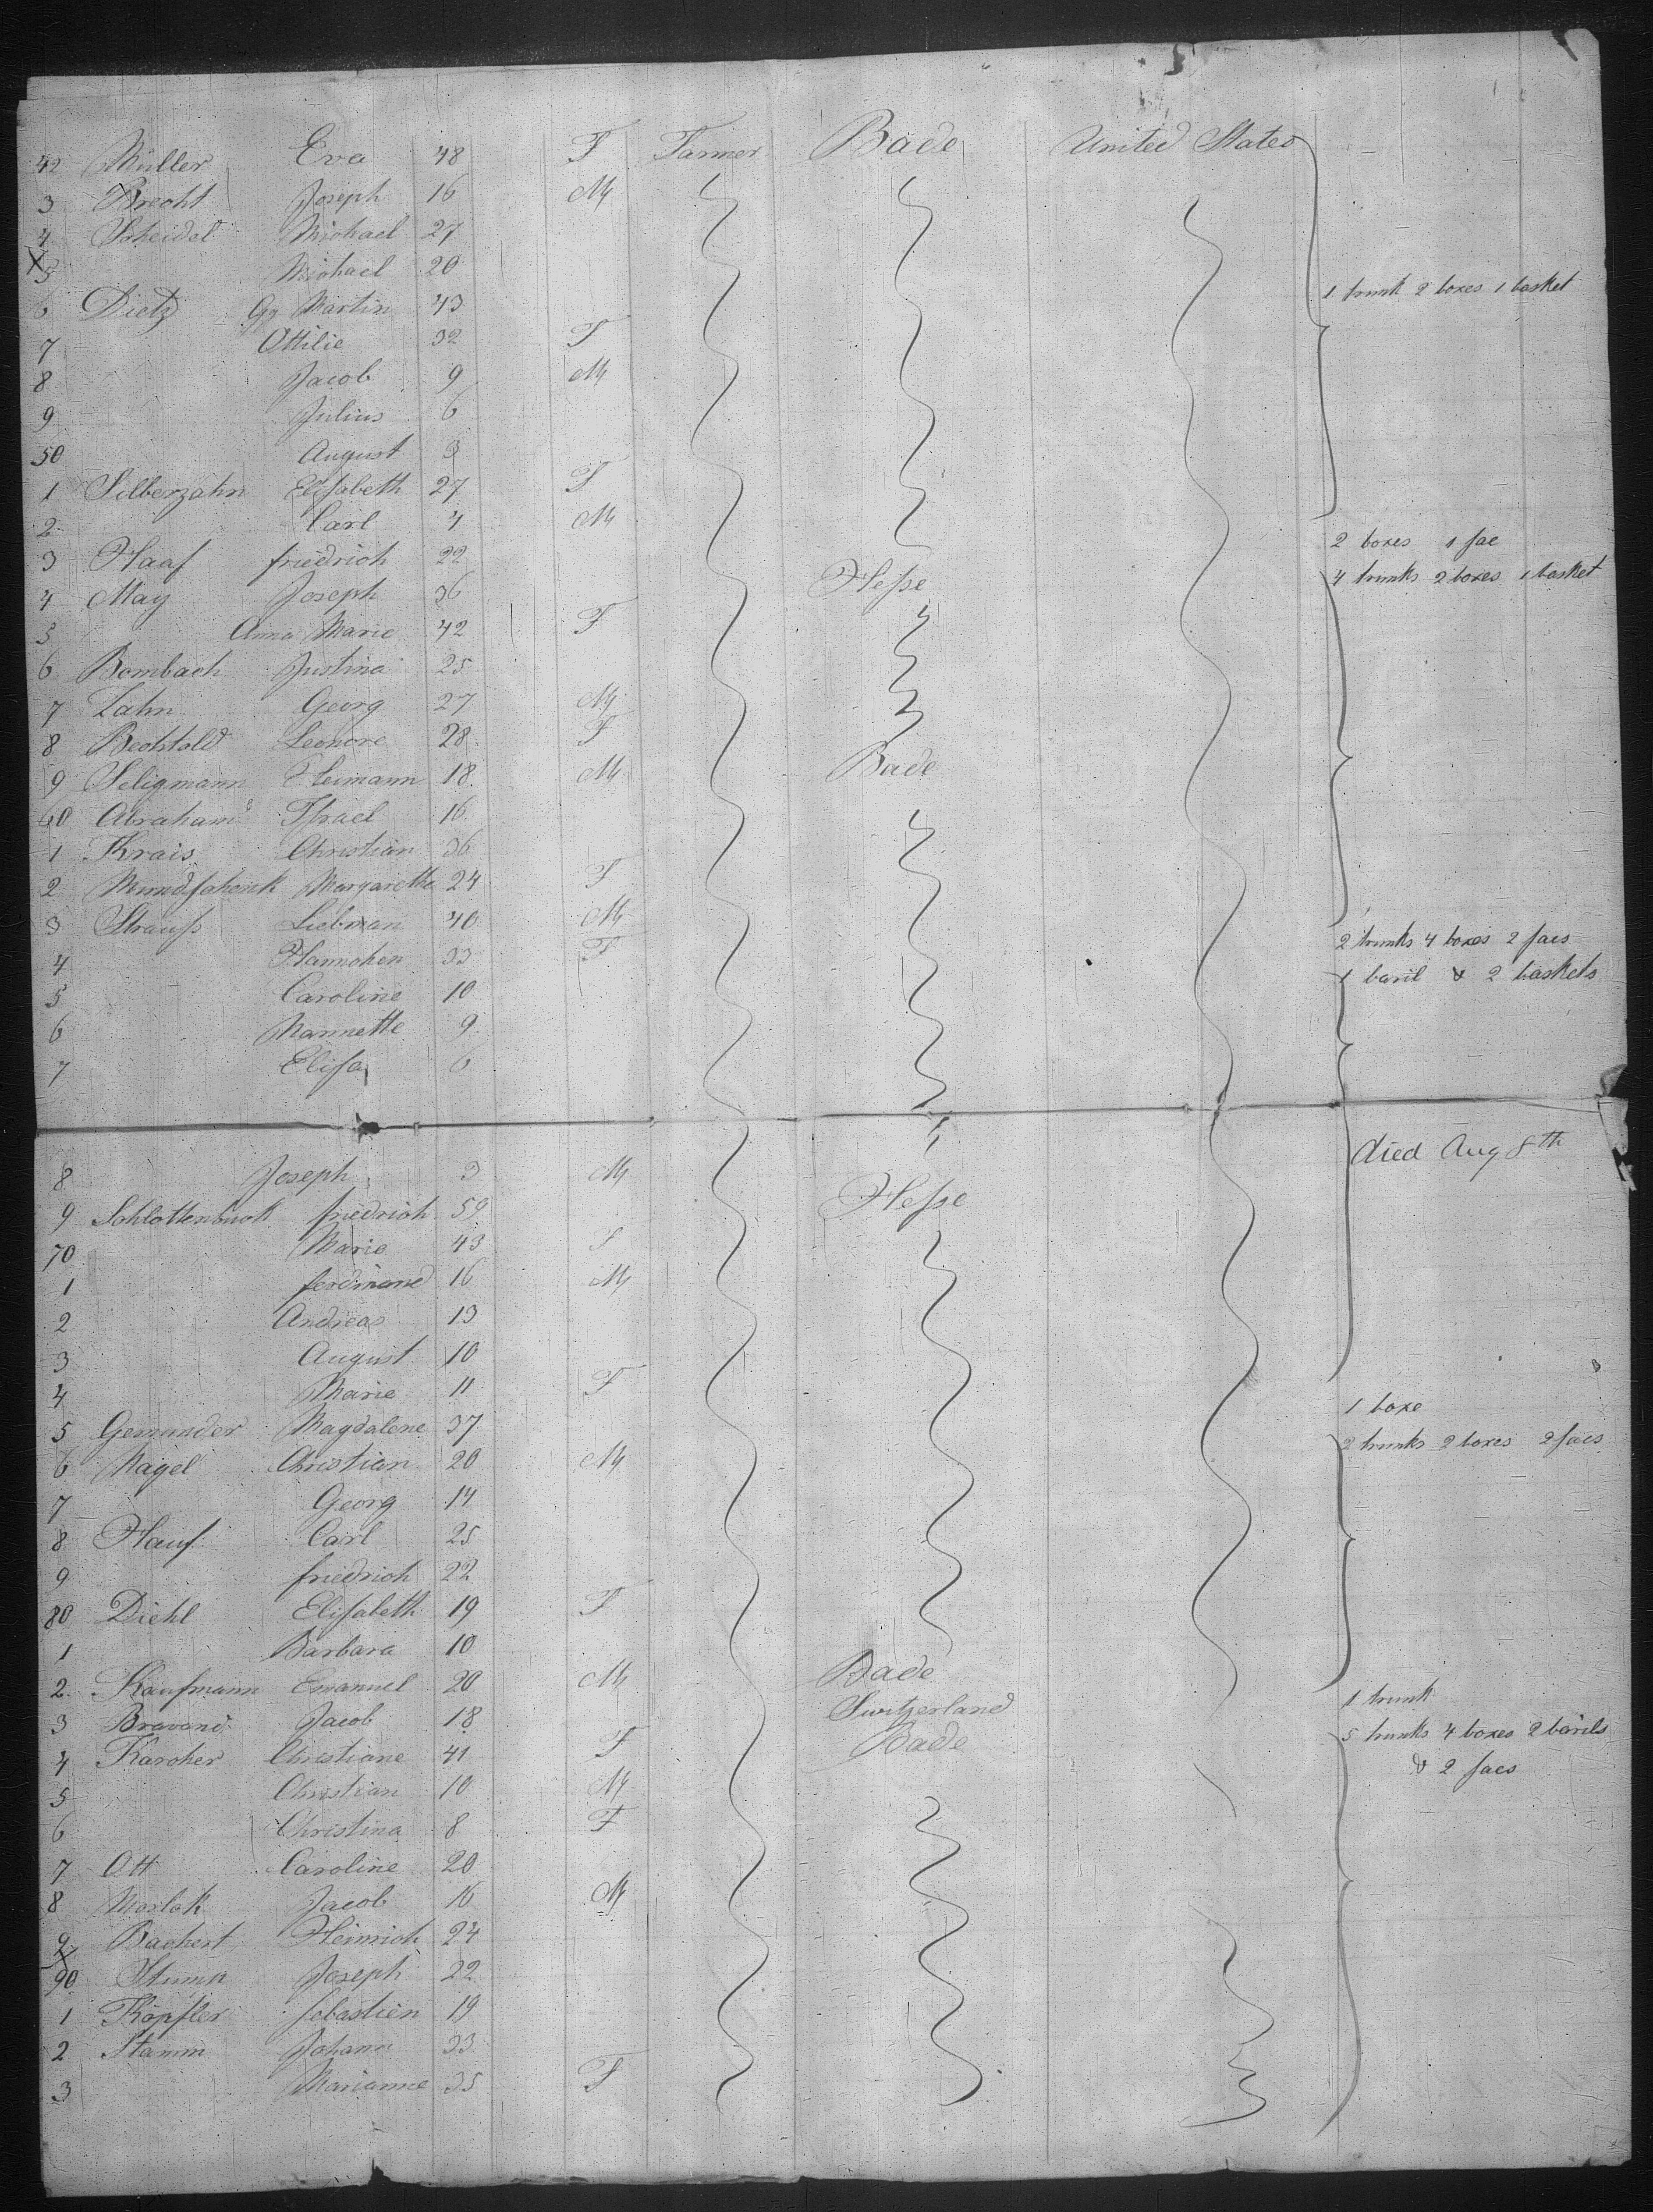 42 Müller Eva 48 F Farmer Bade United States
3 Brecht Joseph 16 M
4 Scheidel Michael 27
X5 Michael 20
6 Dietz Gg Martin 43 1 trunk 2 boxes 1 basket
7 Ottilie 32 F
8 Jacob 9 M
9 Julius 6
50 August 3
1 Silberzahn Elisabeth 27 F
2 Carl 4 M
3 Haaf friedrich 22 2 boxes 1 sac
4 May Joseph 36 Hesse 4 trunks 2 boxes 1 basket
5 Anna Marie 42 F
6 Bombach Justina 25
7 Zahn Georg 27 M
8 Bechtold Leonore 28 F
9 Seligmann Heimann 18 M Bade
60 Abraham Israel 16
1 Krais Christian 36
2 Mundschenk Margaretha 24 F
3 Strauss Liebman 40 M
4 Hannchen 33 F 2 trunks 4 boxes 2 sacs
5 Caroline 10 1 baril & 2 baskets
6 Nannette 9
7 Elisa 6
8 Joseph 3 M died Aug 8th
9 Schlottenbuck friedrich 59 Hesse
70 Marie 43 F
1 ferdinand 16 M
2 Andreas 13
3 August 10
4 Marie 11 F
5 Gemunder Magdalene 37 1 boxe
6 Nagel Christian 20 M 2 trunks 2 boxes 2 sacs
7 Georg 14
8 Hauf Carl 25
9 friedrich 22
80 Diehl Elisabeth 19 F
1 Barbara 10
2 Kaufmann Emanuel 20 M Bade 1 trunk
3 Bravand Jacob 18 Switzerland
4 Karcher Christiane 41 F Bade 5 trunks 4 boxes 2 barils
5 Christian 10 M & 2 sacs
6 Christina 8 F
7 Ott Caroline 20
8 Morlok Jacob 16 M
9 Bachert Heinrich 24
X90 Stump Joseph 22
1 Köpfler sebastien 19
2 Stamm Johann 33
3 Marianne 35 F